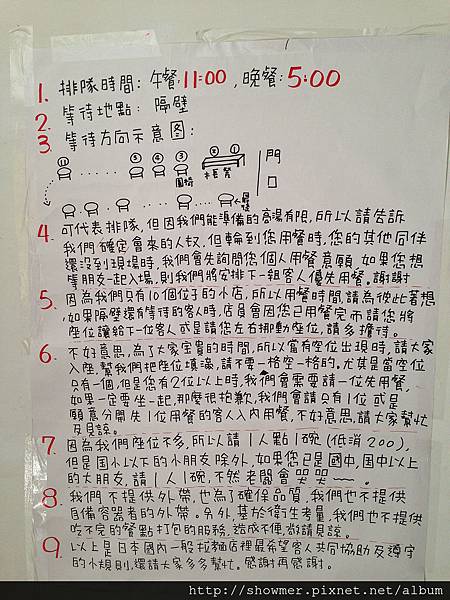 1. 排隊時間: 午餐:11:00, 晚餐:5:00
2. 等待地點: 隔壁
3. 等待方向示意図:
⑪ ⑤ ④ ③ ② ①
圓椅 木長凳 門口
4. 可代表排隊,但因我們能準備的高湯有限,所以請告訴
我們確定會來的人数,但輪到您用餐時,您的其他同伴
還沒到現場時,我們會先詢問您個人用餐意願,如果您想
等朋友一起入場,則我們將安排下一組客人優先用餐。謝謝
5. 因為我們只有10個位子的小店,所以用餐時間,請為彼此著想
,如果隔壁還有等待的客人時,店員會因您已用餐完而請您將
座位讓給下一位客人或是請您左右挪動座位,請多擔待。
6. 不好意思,為了大家宝貴的時間,所以當有空位出現時,請大家
入座,幫我們把座位填滿,請不要一格空一格的。尤其是當空位
只有一個,但是您有2位以上時,我們會需要請一位先用餐,
如果一定要坐一起,那麼很抱歉,我們會請只有1位或是
願意分開先1位用餐的客人入內用餐,不好意思,請大家幫忙
及見諒。
7. 因為我們座位不多,所以請1人點1碗(低消200),
但是国小以下的小朋友除外,如果您已是國中,国中以上
的大朋友,請1人1碗,不然老闆會哭哭~~。
8. 我們不提供外帶,也為了確保品質,我們也不提供
自備容器者的外帶。另外,基於衛生考量,我們也不提供
吃不完的餐點打包的服務,造成不便,尚請見諒。
9. 以上是日本國內一般拉麵店裡最希望客人共同協助及遵守
的小規則,還請大家多多幫忙。感謝再感謝。
http://showmer.pixnet.net/album